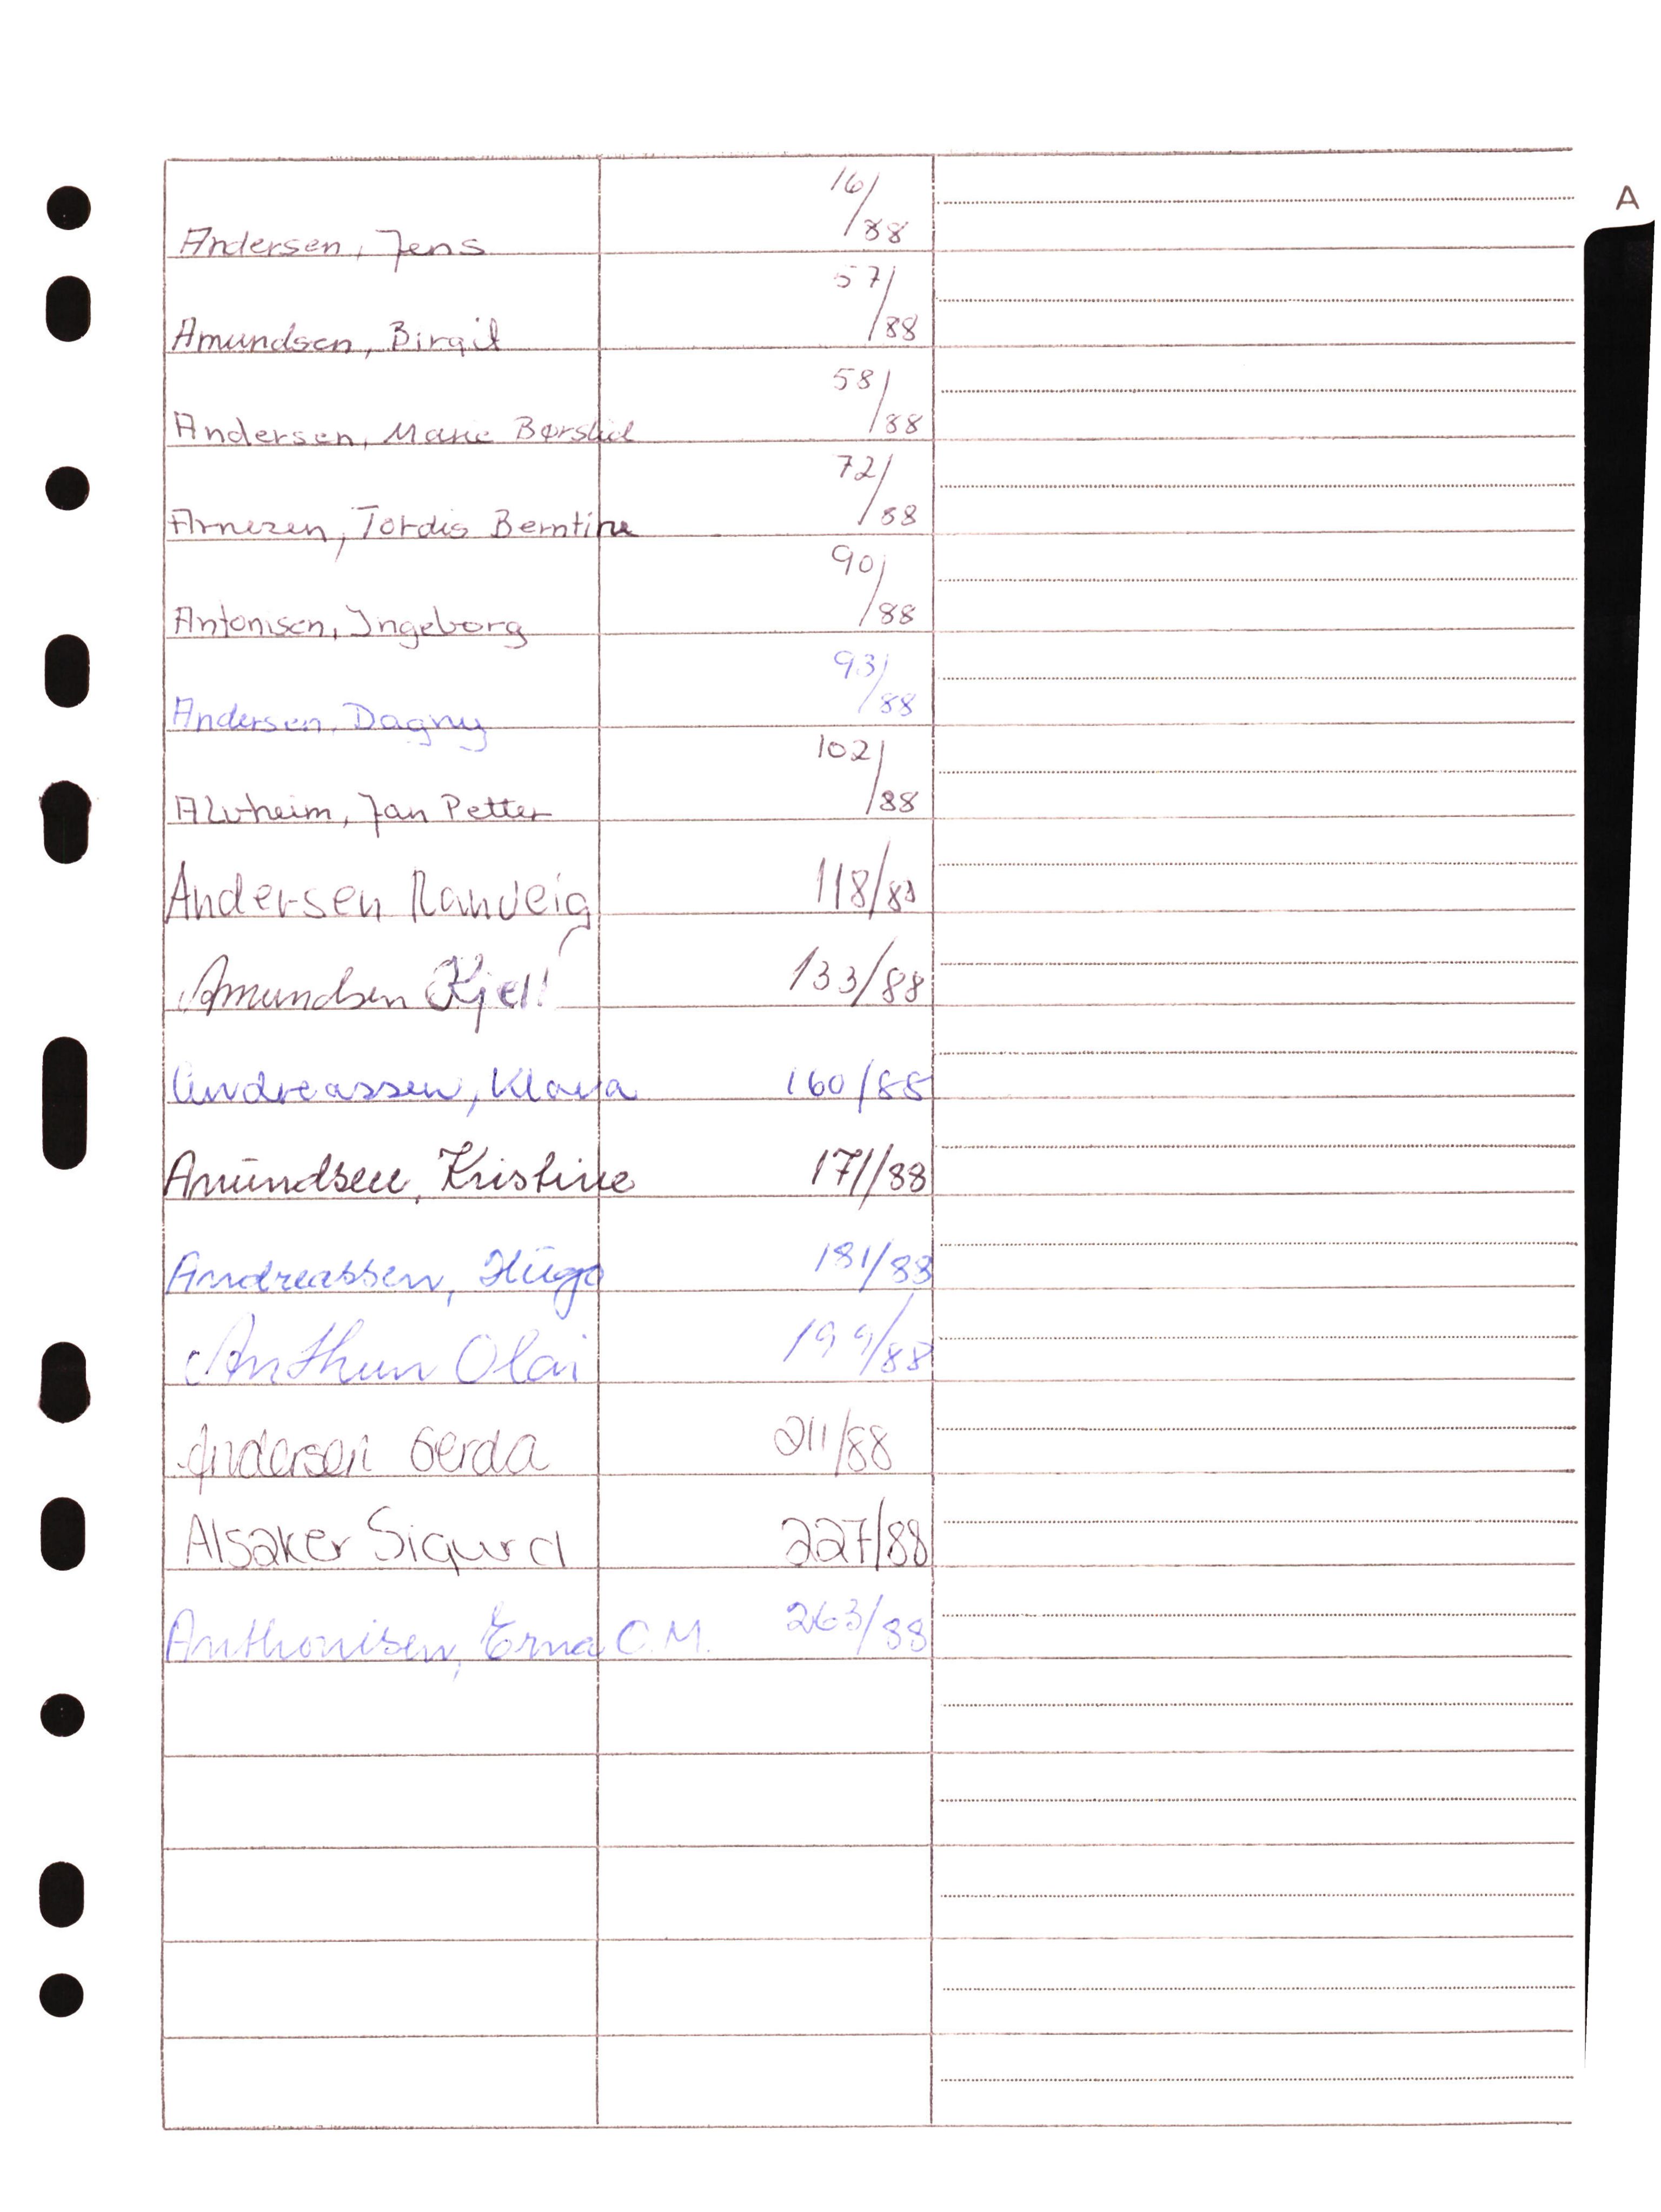 A
Andersen, Jens 16/88
Amundsen, Birgit 57/88
Andersen, Marie 58/88
Arnezen, Tordis Berntine 72/88
Antonisen, Ingeborg 90/88
Andersen, Dagny 93/88
Alvheim, Jan Petter 102/88
Andersen Ranveig 118/88
Amundsen Kjell 133/88
Andreassen, Klara 160/88
Amundsen, Kristine 171/88
Andreassen, Hugo 181/88
Anthun Olai 199/88
Andersen Gerda 211/88
Alsaker Sigurd 227/88
Anthonisen, Erna C.M. 263/88